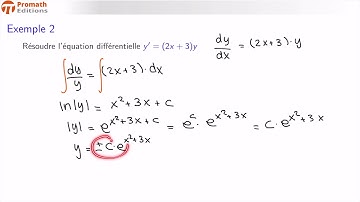 Promath
Editions
Exemple 2
Résoudre l'équation différentielle y' = (2x + 3)y
dy/dx = (2x+3)·y
∫ dy/y = ∫ (2x+3)·dx
ln|y| = x² + 3x + c
|y| = e^(x²+3x+c) = e^c · e^(x²+3x) = c · e^(x²+3x)
y = ± c · e^(x²+3x)